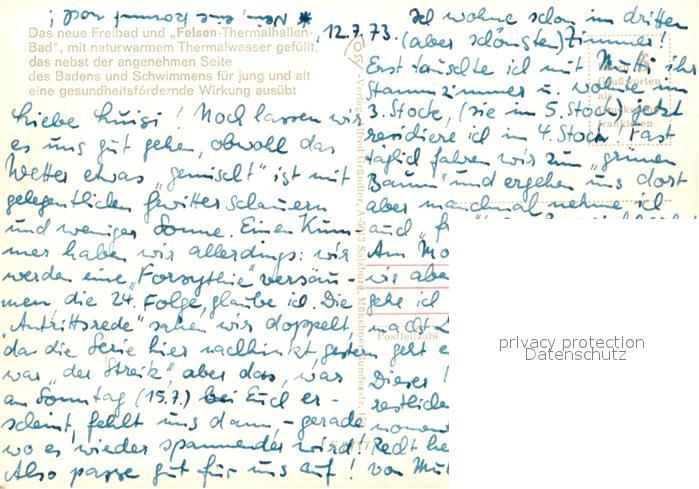 * Nein, eine kommt noch!
Das neue Freibad und „Felsen-Thermalhallen-
Bad", mit naturwarmem Thermalwasser gefüllt,
das nebst der angenehmen Seite
des Badens und Schwimmens für jung und alt
eine gesundheitsfördernde Wirkung ausübt
12.7.73.
Liebe Luigi! Noch lassen wir
es uns gut gehen, obwohl das
Wetter etwas „gemischt" ist mit
gelegentlichen Gewitterschauern
und weniger Sonne. Einen Kum-
mer haben wir allerdings: wir
werden eine „Forsythie" versäu-
men die 24. Folge, glaube ich. Die
„Antrittsrede" sahen wir doppelt,
da die Serie hier nachhinkt, gestern
war „der Streik", aber das, was
am Sonntag (15.7.) bei Euch er-
scheint, fehlt uns dann, - gerade
wo es wieder spannender wird!
Also passe gut für uns auf!
Ich wohne schon im dritten
(aber schönsten) Zimmer!
Erst tauschte ich mit Mutti ihr
Stammzimmer u. wohnte im
3. Stock, (sie im 5. Stock) jetzt
residiere ich im 4. Stock! Fast
täglich fahren wir zum „grünen
Baum" und ergehen uns dort
aber manchmal nehme ich
auch
Am Mo
wir aber
gehe ich
macht
geht e
Dieser
restliche
moment
Recht he
von Mut
Postleitzahl
privacy protection
Datenschutz